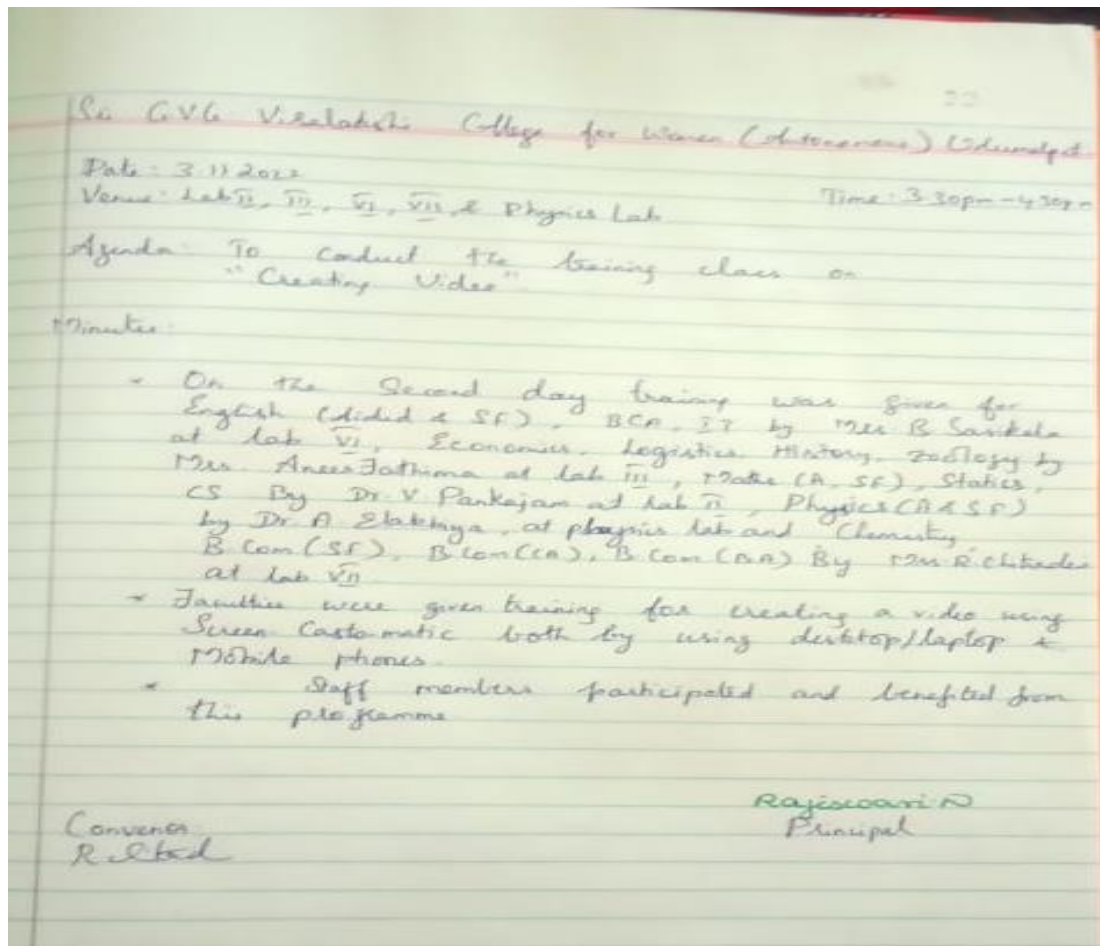 Sri GVG Visalakshi College for Women (Autonomous) Udumalpet
Date: 3.11.2022
Time: 3.30pm-4.30pm
Venue: Lab II, III, VI, VII, & Physics Lab
Agenda: To conduct the training class on
"Creating Video"
Minutes:
- On the Second day training was given for
English (Aided & SF), BCA, IT by Mrs B Sasikala
at Lab VI, Economics, Logistics, History, Zoology by
Mrs. Anees Fathima at Lab III, Maths (A, SF), Statics,
CS By Dr V Pankajam at Lab II, Physics (A & SF)
by Dr A Elakkiya, at physics lab and Chemistry,
B.Com (SF), B.Com (CA), B.Com (BA) By Mrs R
at Lab VII
- Faculties were given training for creating a video using
Screen Casto matic both by using desktop/laptop &
Mobile phones.
- Staff members participated and benefited from
this programme
Rajeswari N
Principal
Convenor